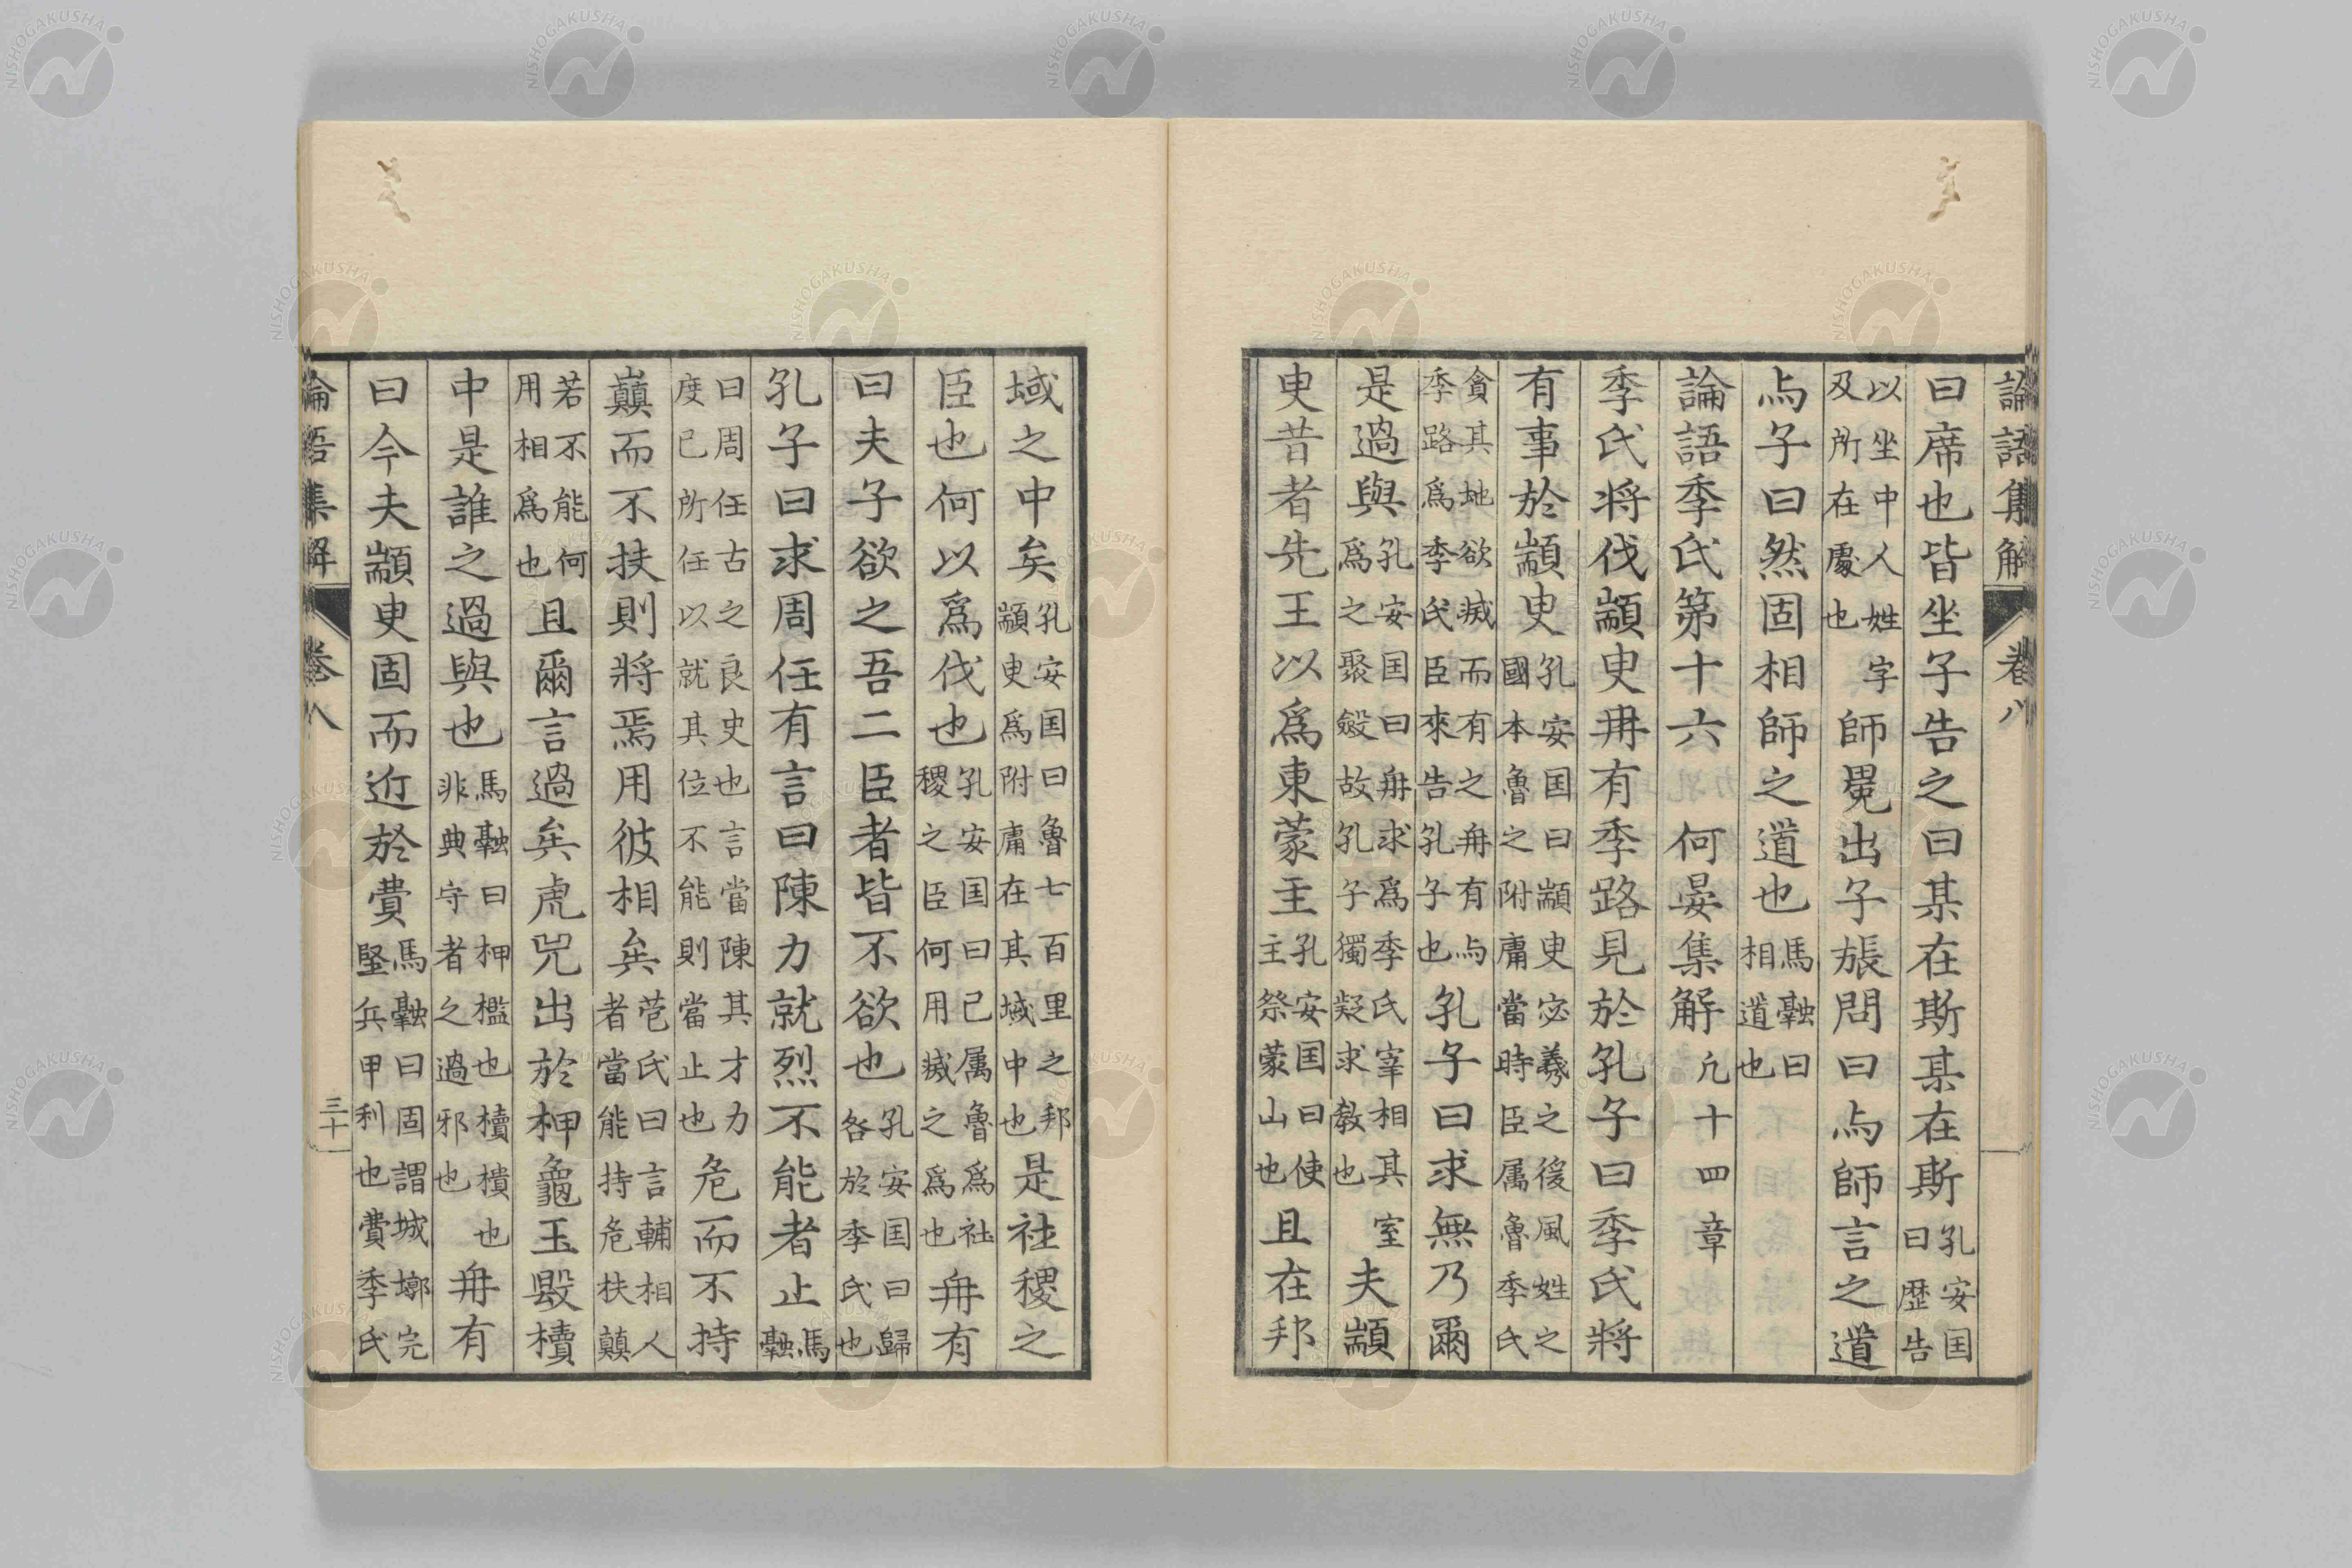 論語集解 卷八
曰席也皆坐子告之曰某在斯某在斯孔安囯曰歴告
以坐中人姓字及所在處也師冕出子張問曰与師言之道
与子曰然固相師之道也馬融曰相道也
論語季氏第十六 何晏集解 凢十四章
季氏将伐顓臾冉有季路見於孔子曰季氏將
有事於顓臾孔安囯曰顓臾宓羲之後風姓之國本魯之附庸當時臣属魯季氏
貪其地欲滅而有之冉有与季路為季氏臣來告孔子也孔子曰求無乃爾
是過與孔安囯曰冉求為季氏宰相其室為之聚斂故孔子獨疑求教也夫顓
臾昔者先王以為東蒙主孔安囯曰使主祭蒙山也且在邦
域之中矣孔安囯曰魯七百里之邦顓臾為附庸在其域中也是社稷之
臣也何以為伐也孔安囯曰已属魯為社稷之臣何用滅之為也冉有
曰夫子欲之吾二臣者皆不欲也孔安囯曰歸咎於季氏也
孔子曰求周任有言曰陳力就烈不能者止馬融
曰周任古之良史也言當陳其才力度已所任以就其位不能則當止也危而不持
巔而不扶則將焉用彼相矣苞氏曰言輔相人者當能持危扶顛
若不能何用相為也且爾言過矣虎兕出於柙龜玉毀櫝
中是誰之過與也馬融曰柙檻也櫝樻也非典守者之過邪也冉有
曰今夫顓臾固而近於費馬融曰固謂城墎完堅兵甲利也費季氏
論語集解 卷八 三十